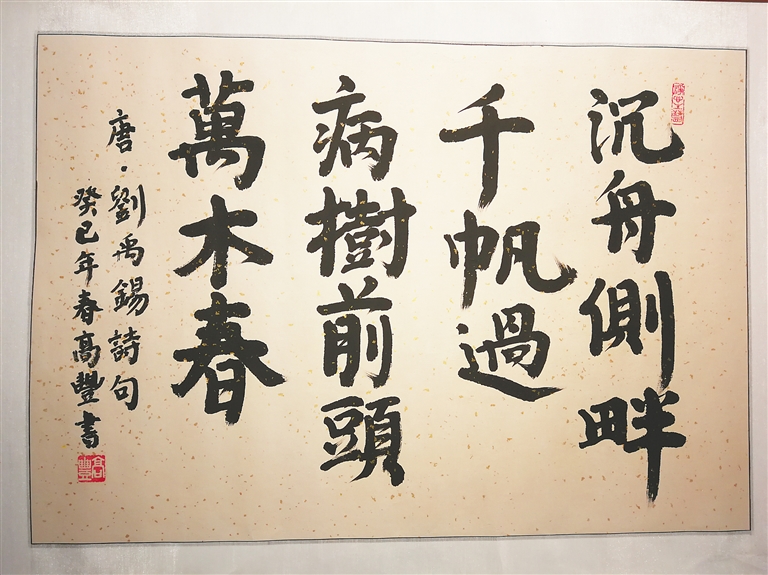 沉舟側畔
千帆過
病樹前頭
萬木春
唐·劉禹錫詩句
癸巳年春高豐書
高豐